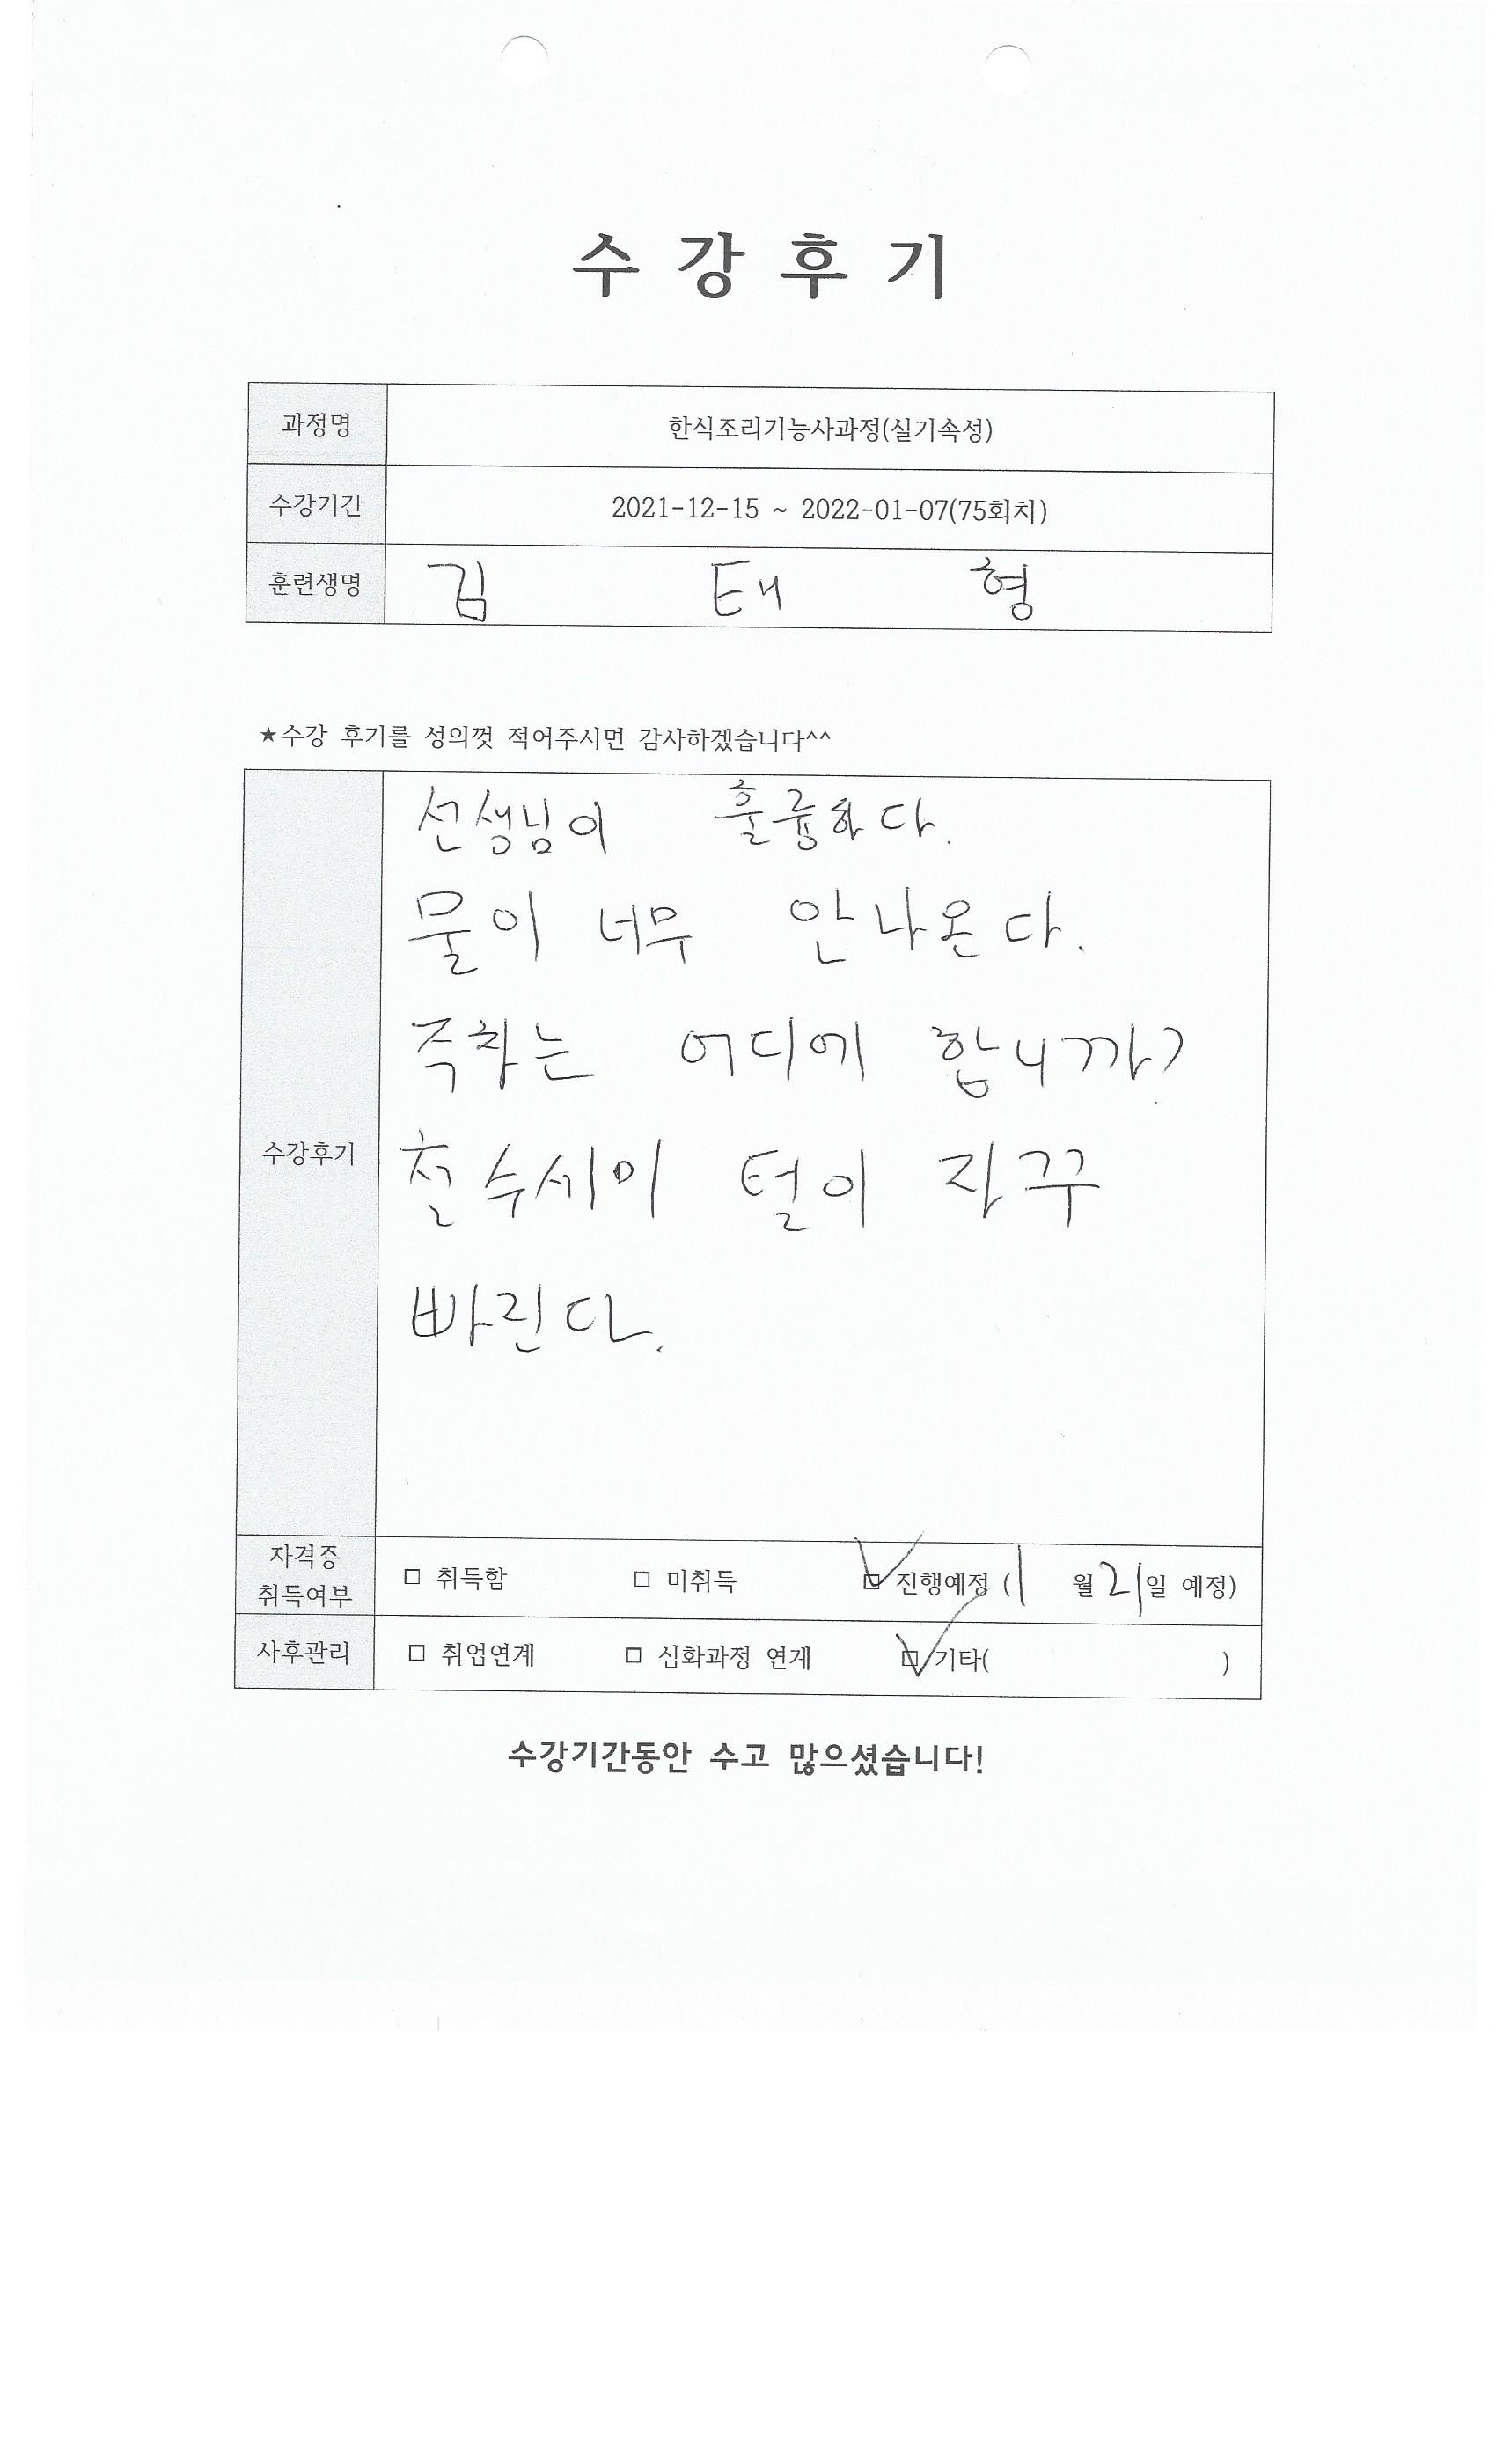 수 강 후 기
과정명 한식조리기능사과정(실기속성)
수강기간 2021-12-15 ~ 2022-01-07(75회차)
훈련생명 김 태 형
★수강 후기를 성의껏 적어주시면 감사하겠습니다^^
수강후기
선생님이 훌륭하다.
물이 너무 안나온다.
주차는 어디에 합니까?
철수세미 털이 자꾸
빠린다.
자격증
취득여부
□ 취득함 □ 미취득 ☑ 진행예정 (1 월 21일 예정)
사후관리 □ 취업연계 □ 심화과정 연계 ☑ 기타( )
수강기간동안 수고 많으셨습니다!